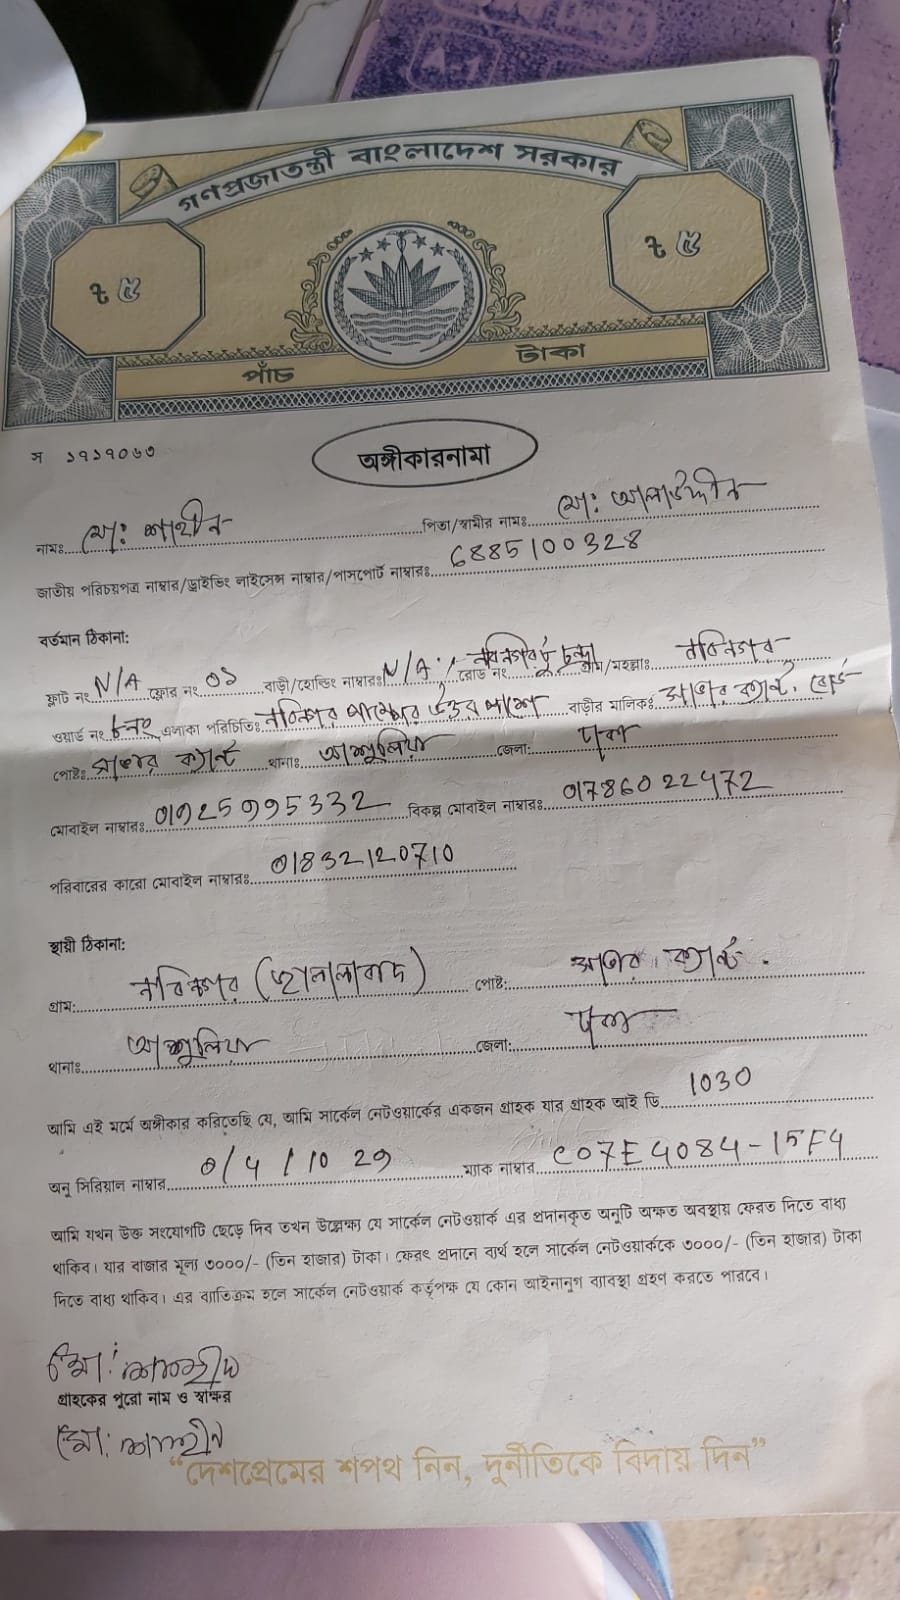 গণপ্রজাতন্ত্রী বাংলাদেশ সরকার
৳ ৫ ৳ ৫
পাঁচ টাকা
স ১৭১৭০৬৩
অঙ্গীকারনামা
নামঃ মো: শাহীন পিতা/স্বামীর নামঃ মো: আলাউদ্দীন
জাতীয় পরিচয়পত্র নাম্বার/ড্রাইভিং লাইসেন্স নাম্বার/পাসপোর্ট নাম্বারঃ 6885100328
বর্তমান ঠিকানা:
ফ্লাট নং N/A ফ্লোর নং ০১ বাড়ী/হোল্ডিং নাম্বারঃ N/A রোড নং নবিনগর টু চন্দ্রা গ্রাম/মহল্লাঃ নবিনগর
ওয়ার্ড নং ৮নং এলাকা পরিচিতিঃ নবিনগর পাম্পের উত্তর পাশে বাড়ীর মালিকঃ সাভার ক্যান্ট. বোর্ড
পোষ্টঃ সাভার ক্যান্ট থানাঃ আশুলিয়া জেলা: ঢাকা
মোবাইল নাম্বারঃ 01925995332 বিকল্প মোবাইল নাম্বারঃ 01786022472
পরিবারের কারো মোবাইল নাম্বারঃ 01832120710
স্থায়ী ঠিকানা:
গ্রাম: নবিনগর (জালালাবাদ) পোষ্ট: সাভার ক্যান্ট.
থানাঃ আশুলিয়া জেলা: ঢাকা
আমি এই মর্মে অঙ্গীকার করিতেছি যে, আমি সার্কেল নেটওয়ার্কের একজন গ্রাহক যার গ্রাহক আই ডি 1030
অনু সিরিয়াল নাম্বার 0/4/10 29 ম্যাক নাম্বার C07E4084-15F4
আমি যখন উক্ত সংযোগটি ছেড়ে দিব তখন উল্লেক্ষ্য যে সার্কেল নেটওয়ার্ক এর প্রদানকৃত অনুটি অক্ষত অবস্থায় ফেরত দিতে বাধ্য
থাকিব। যার বাজার মূল্য ৩০০০/- (তিন হাজার) টাকা। ফেরৎ প্রদানে ব্যর্থ হলে সার্কেল নেটওয়ার্ককে ৩০০০/- (তিন হাজার) টাকা
দিতে বাধ্য থাকিব। এর ব্যতিক্রম হলে সার্কেল নেটওয়ার্ক কর্তৃপক্ষ যে কোন আইনানুগ ব্যাবস্থা গ্রহণ করতে পারবে।
মো: শাহীন
গ্রাহকের পুরো নাম ও স্বাক্ষর
মো: শাহীন
“দেশপ্রেমের শপথ নিন, দুর্নীতিকে বিদায় দিন”